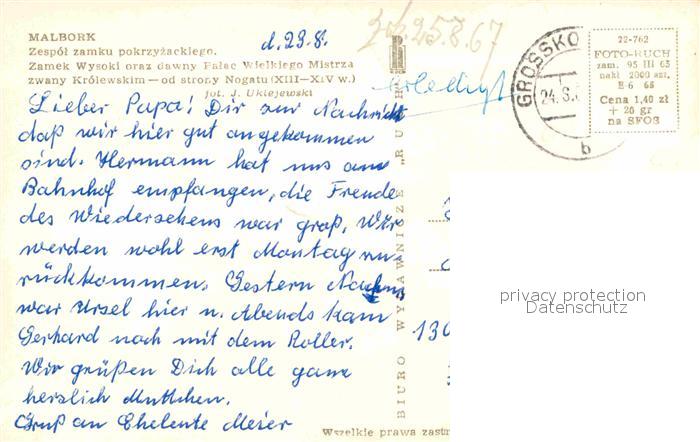 MALBORK
Zespół zamku pokrzyżackiego.
Zamek Wysoki oraz dawny Pałac Wielkiego Mistrza
zwany Królewskim — od strony Nogatu (XIII-XIV w.)
fot. J. Uklejewski
d. 23.8.
25.8.67
erledigt
GROSSKO
24.8.
b
22-762
FOTO-RUCH
zam. 95 III 65
nakł 2000 szt.
E-6 66
Cena 1,40 zł
+ 20 gr
na SFOS
Lieber Papa! Dir zur Nachricht
daß wir hier gut angekommen
sind. Hermann hat uns am
Bahnhof empfangen, die Freude
des Wiedersehens war groß. Wir
werden wohl erst Montag zu-
rückkommen. Gestern Nachm.
war Ursel hier u. Abends kam
Gerhard noch mit dem Roller.
Wir grüßen Dich alle ganz
herzlich Muttchen.
Gruß an Eheleute Meier
BIURO WYDAWNICZE „RUCH"
130
privacy protection
Datenschutz
Wszelkie prawa zastr